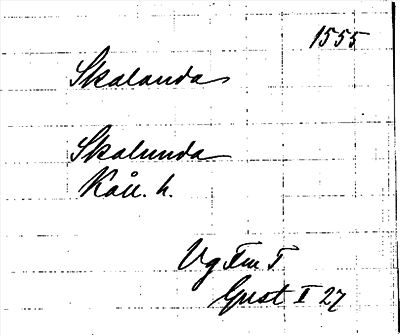 1555
Skalanda
Skalunda
Kåll. h.
Vg Fm T
Gust I 27